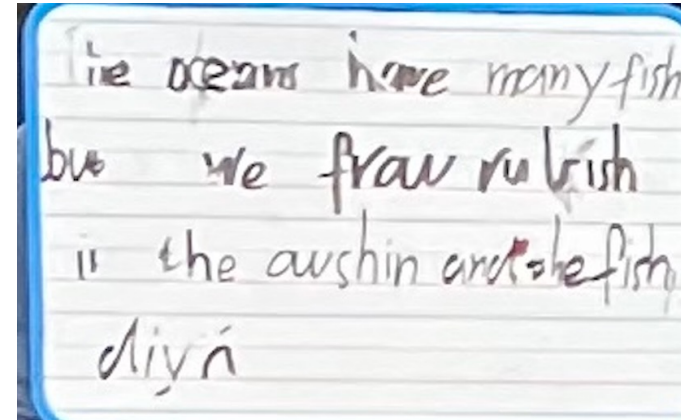 The oceans have many fish
but we frow rubish
in the aushin and the fish
diyn